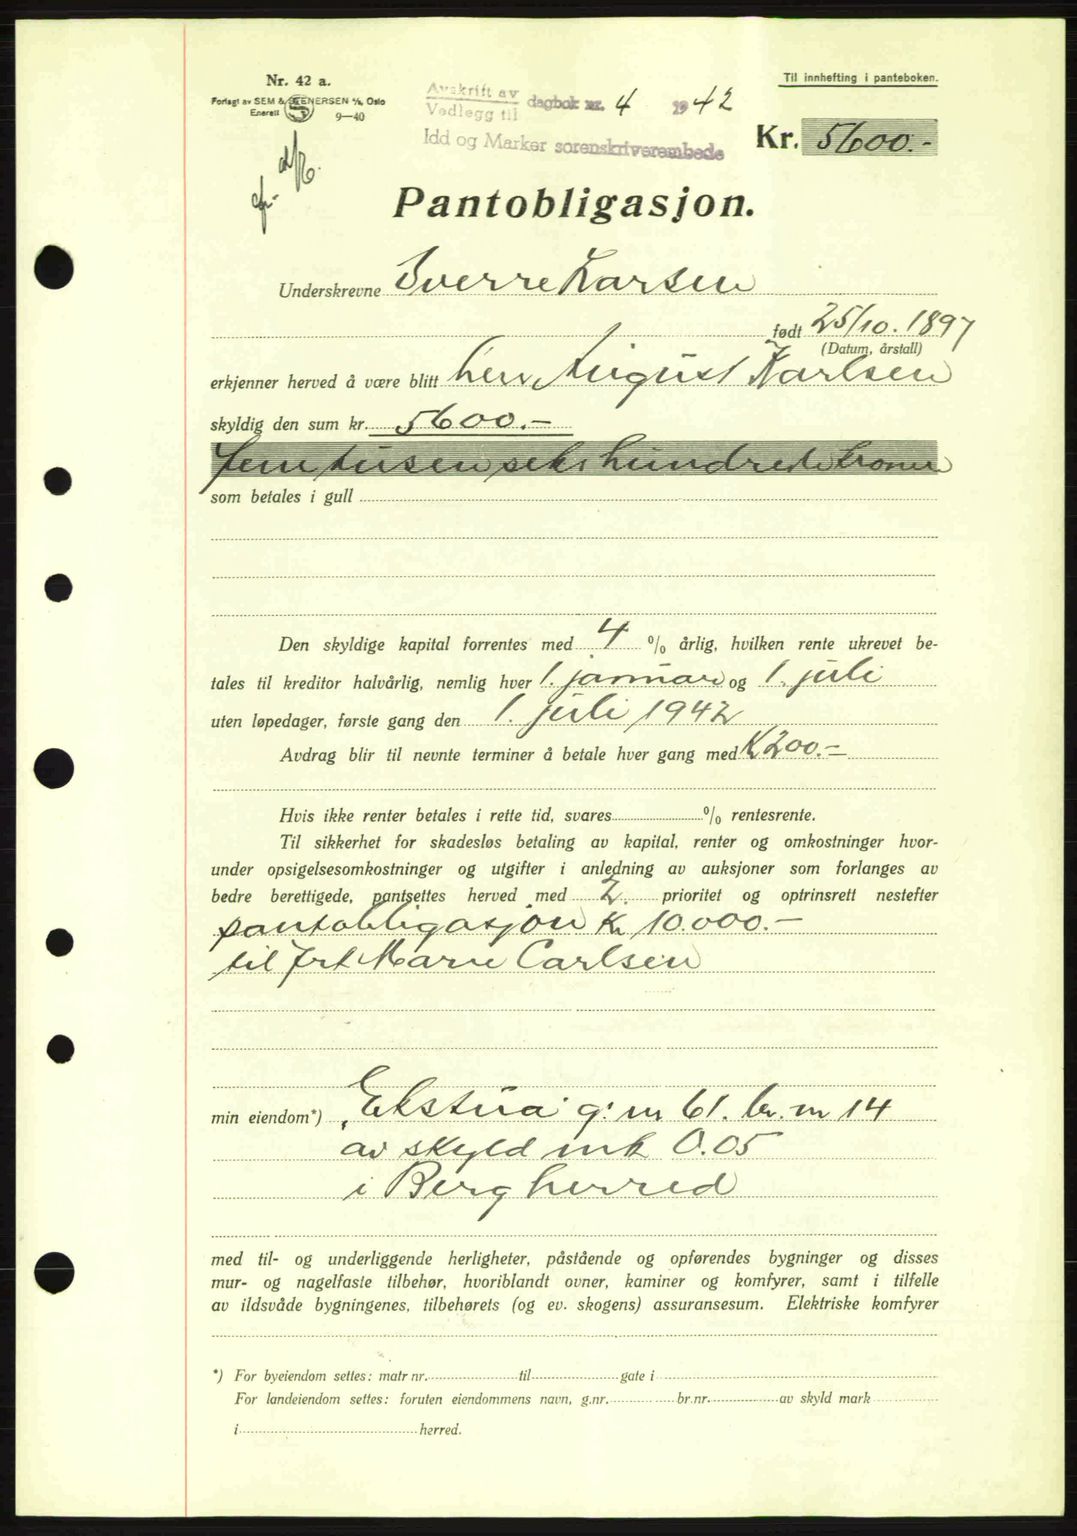 Nr. 42 a.
Forlagt av SEM & STENERSEN A/S, Oslo
Enerett 9—40
Til innhefting i panteboken.
Avskrift av
Vedlegg til dagbok nr. 4 1942
Idd og Marker sorenskriverembede
Kr. 5600.-
Pantobligasjon.
Underskrevne Sverre Larsen
født 25/10. 1897
(Datum, årstall)
erkjenner herved å være blitt herr August Karlsen
skyldig den sum kr. 5600.-
fem tusen seks hundrede kroner
som betales i gull
Den skyldige kapital forrentes med 4 % årlig, hvilken rente ukrevet be-
tales til kreditor halvårlig, nemlig hver 1. januar og 1. juli
uten løpedager, første gang den 1. juli 1942
Avdrag blir til nevnte terminer å betale hver gang med K 200.-
Hvis ikke renter betales i rette tid, svares % rentesrente.
Til sikkerhet for skadesløs betaling av kapital, renter og omkostninger hvor-
under opsigelsesomkostninger og utgifter i anledning av auksjoner som forlanges av
bedre berettigede, pantsettes herved med 2. prioritet og optrinsrett nestefter
pantobligasjon Kr 10.000.-
til Frk Marie Carlsen
min eiendom*) „Ekstua" g: nr 61. br. nr 14
av skyld mk 0.05
i Berg herred
med til- og underliggende herligheter, påstående og opførendes bygninger og disses
mur- og nagelfaste tilbehør, hvoriblandt ovner, kaminer og komfyrer, samt i tilfelle
av ildsvåde bygningenes, tilbehørets (og ev. skogens) assuransesum. Elektriske komfyrer
*) For byeiendom settes: matr nr. til gate i
For landeiendom settes: foruten eiendommens navn, g.nr. br.nr. av skyld mark
i herred.